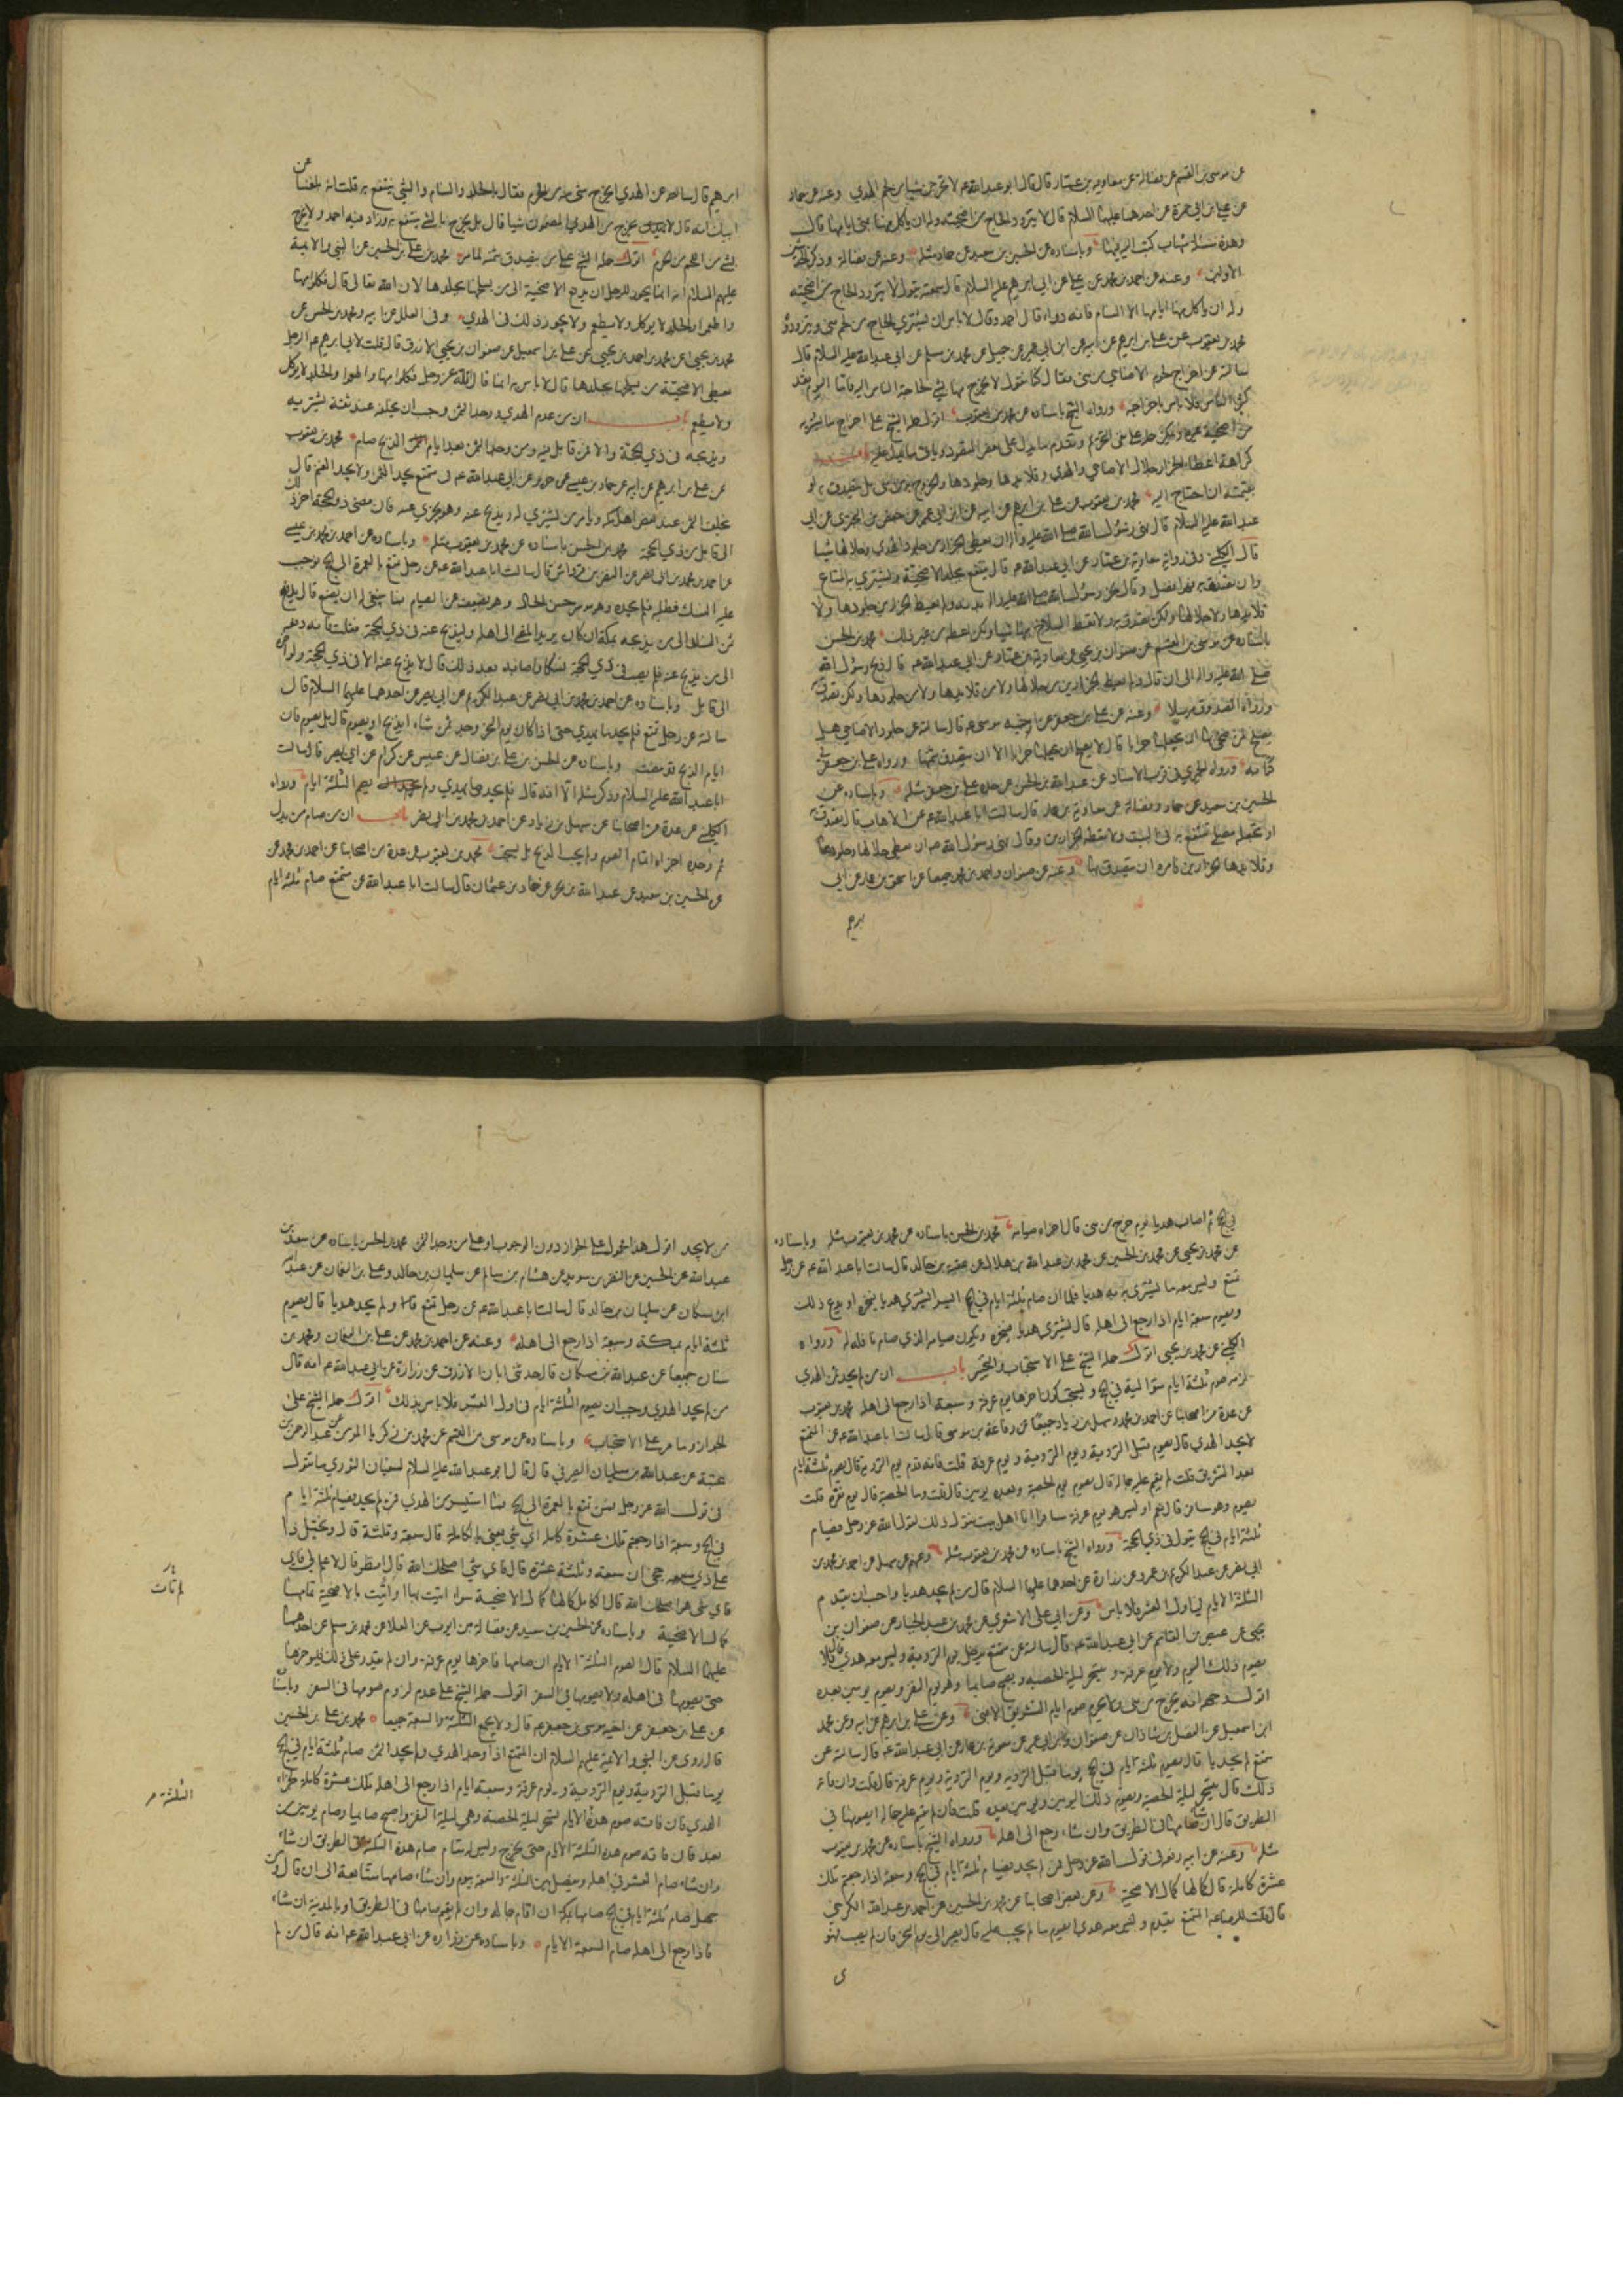 عن موسى بن القسم عن فضالة عن معاوية بن عمار قال قال ابو عبد الله عم لا تخرجن شيئا من لحم الهدي وعنه عن حماد
عن علي بن ابي حمزة عن احدهما عليهما السلام قال لا يتزود الحاج من اضحيته وله ان ياكل منها بمنى ايامها قال
وهذه مسئلة شهاب كتب اليه فيها وباسناده عن الحسين بن سعيد عن حماد مثله وعنه عن فضالة وذكر
الاولين وعنه عن احمد بن محمد عن علي عن ابي ابرهيم عليه السلام قال سمعته يقول لا يتزود الحاج من اضحيته
وله ان ياكل منها ايامها الا السنام فانه دواء قال احمد وقال لا باس ان يشتري الحاج من لحم منى ويتزوده
محمد بن يعقوب عن علي بن ابرهيم عن ابيه عن ابن ابي عمير عن جميل عن محمد بن مسلم عن ابي عبد الله عليه السلام قال
سالته عن اخراج لحوم الاضاحي من منى فقال كنا نقول لا يخرج منها شي لحاجة الناس اليه فاما اليوم فقد
كثر الناس فلا باس باخراجه ورواه الشيخ باسناده عن محمد بن يعقوب اقول حمله الشيخ على اخراج ما يشتريه
كراهة اعطاء الجزار جلال الاضاحي والهدي وقلايدها وجلودها
عبد الله عليه السلام قال نهى رسول الله صلى الله عليه وآله ان يعطى الجزار من جلود الهدي وجلالها شيئا
قال الكليني وفي رواية معاوية بن عمار عن ابي عبد الله عم قال ينتفع بجلد الاضحية ويشتري به المتاع
وان تصدق به فهو افضل وقال نحر رسول الله صلى الله عليه وآله بدنه ولم يعط الجزارين جلودها ولا
قلايدها ولا جلالها ولكن تصدق به ولا تعط السلاخ منها شيئا ولكن اعطه من غير ذلك محمد بن الحسن
باسناده عن موسى بن القسم عن صفوان بن يحيى عن معاوية بن عمار عن ابي عبد الله عم قال ذبح رسول الله
صلى الله عليه وآله الى ان قال ولم يعط الجزارين من جلالها ولا من قلايدها ولا من جلودها ولكن تصدق به
ورواه الصدوق مرسلا وعنه عن علي بن جعفر عن اخيه موسى عم قال سالته عن جلود الاضاحي هل
يصلح لمن ضحى بها ان يجعلها جرابا قال لا يصلح ان يجعلها جرابا الا ان يتصدق بثمنها ورواه علي بن جعفر في
كتابه ورواه الحميري في قرب الاسناد عن عبد الله بن الحسن عن جده علي بن جعفر مثله وباسناده عن
الحسين بن سعيد عن حماد وفضالة عن معاوية بن عمار قال سالت ابا عبد الله عم عن الاهاب قال تصدق به
او تجعله مصلى تنتفع به في البيت ولا تعطه الجزارين وقال نهى رسول الله ص ان يعطى جلالها وجلودها
وقلايدها الجزارين وامره ان يتصدق بها وعنه عن صفوان واحمد بن محمد جميعا عن اسحق بن عمار عن ابي
ابرهيم
ابرهيم قال سالته عن الهدي ايخرج شي منه من الحرم فقال بالجلد والسنام والشي ينتفع به قلت انه بلغنا عن
ابيك انه قال لا يخرج من الهدي المضمون شيئا قال بل يخرج بالشي ينتفع به وزاد فيه احمد ولا يخرج
بشي من اللحم من الحرم اقول حمله الشيخ على من يتصدق بثمنه لما مر محمد بن علي بن الحسين عن النبي والائمة
عليهم السلام انه انما يجوز للرجل ان يدفع الاضحية الى من يسلخها بجلدها لان الله تعالى قال فكلوا منها
واطعموا والجلد لا يوكل ولا يطعم ولا يجوز ذلك في الهدي وفي العلل عن ابيه ومحمد بن الحسن عن
محمد بن يحيى عن محمد بن احمد بن يحيى عن علي بن اسمعيل عن صفوان بن يحيى الازرق قال قلت لابي ابرهيم عم الرجل
يعطي الاضحية من يسلخها بجلدها قال لا باس به انما قال الله عز وجل فكلوا منها واطعموا والجلد لا يوكل
ولا يطعم باب ان من عدم الهدي ووجد الثمن وجب ان يخلفه عند ثقة يشتريه
ويذبحه في ذي الحجة والا فمن قابل فيه ومن وجد الثمن بعد ايام الذبح صام محمد بن يعقوب
عن علي بن ابرهيم عن ابيه عن حماد بن عيسى عن حريز عن ابي عبد الله عم في متمتع يجد الثمن ولا يجد الغنم قال
يخلف الثمن عند بعض اهل مكة ويامر من يشتري له ويذبح عنه وهو يجزي عنه فان مضى ذو الحجة اخر ذلك
الى قابل من ذي الحجة محمد بن الحسن باسناده عن محمد بن يعقوب مثله وباسناده عن احمد بن محمد بن عيسى
عن احمد بن محمد بن ابي نصر عن النضر بن قرواش قال سالت ابا عبد الله عم عن رجل تمتع بالعمرة الى الحج فوجب
عليه النسك فطلبه فلم يجده وهو موسر حسن الحال وهو يضعف عن الصيام فما ينبغي له ان يصنع قال يدفع
ثمن النسك الى من يذبحه بمكة ان كان يريد المضي الى اهله وليذبح عنه في ذي الحجة فقلت فانه دفعه
الى من يذبح عنه فلم يصب في ذي الحجة نسكا واصابه بعد ذلك قال لا يذبح عنه الا في ذي الحجة ولو اخره
الى قابل وباسناده عن احمد بن محمد بن ابي نصر عن عبد الكريم عن ابي بصير عن احدهما عليهما السلام قال
سالته عن رجل تمتع فلم يجد ما يهدي حتى اذا كان يوم النحر وجد ثمن شاة ايذبح او يصوم قال بل يصوم فان
ايام الذبح قد مضت وباسناده عن الحسن بن علي بن فضال عن عبيس عن كرام عن ابي بصير قال سالت
ابا عبد الله عليه السلام وذكر مثله الا انه قال فلم يجد ما يهدي ولم يصم الثلثة ايام ورواه
الكليني عن عدة من اصحابنا عن سهل بن زياد عن احمد بن محمد بن ابي نصر باب ان من صام
ثم وجده اجزاه اتمام الصوم ولم يجب الذبح بل يستحب محمد بن يعقوب عن عدة من اصحابنا عن احمد بن محمد عن
عن الحسين بن سعيد عن عبد الله بن بحر عن حماد بن عثمان قال سالت ابا عبد الله عن متمتع صام ثلثة ايام
في الحج ثم اصاب هديا يوم خرج من منى قال اجزاه صيامه محمد بن الحسن باسناده عن محمد بن يعقوب مثله وباسناده
عن محمد بن يحيى عن محمد بن الحسين عن محمد بن عبد الله بن هلال عن عقبة بن خالد قال سالت ابا عبد الله عم عن رجل
تمتع وليس معه ما يشتري به هديا فلما ان صام ثلثة ايام في الحج ايسر ايشتري هديا فينحره او يدع ذلك
ويصوم سبعة ايام اذا رجع الى اهله قال يشتري هديا فينحره ويكون صيامه الذي صامه نافلة له ورواه
الكليني عن محمد بن يحيى اقول حمله الشيخ على الاستحباب والتخيير باب ان من لم يجد ثمن الهدي
لزمه صوم ثلثة ايام متوالية في الحج ويستحب كون اخرها يوم عرفة وسبعة اذا رجع الى اهله محمد بن يعقوب
عن عدة من اصحابنا عن احمد بن محمد وسهل بن زياد جميعا عن رفاعة بن موسى قال سالت ابا عبد الله عم عن المتمتع
لا يجد الهدي قال يصوم قبل التروية ويوم التروية ويوم عرفة قلت فانه قدم يوم التروية قال يصوم ثلثة ايام
بعد التشريق قلت لم يقم عليه جماله قال يصوم يوم الحصبة وبعده يومين قال قلت وما الحصبة قال يوم نفره قلت
يصوم وهو مسافر قال نعم اوليس هو يوم عرفة مسافرا انا اهل بيت نقول ذلك لقول الله عز وجل فصيام
ثلثة ايام في الحج يقول في ذي الحجة ورواه الشيخ باسناده عن محمد بن يعقوب مثله وعنهم عن سهل عن احمد بن محمد بن
ابي نصر عن عبد الكريم بن عمرو عن زرارة عن احدهما عليهما السلام قال من لم يجد هديا واحب ان يقدم
الثلثة الايام في اول العشر فلا باس وعن ابي علي الاشعري عن محمد بن عبد الجبار عن صفوان بن
يحيى عن عيص بن القاسم عن ابي عبد الله عم قال سالته عن متمتع يدخل يوم التروية وليس معه هدي قال فلا
يصوم ذلك اليوم ولا يوم عرفة ويتسحر ليلة الحصبة ويصبح صايما وهو يوم النفر ويصوم يومين بعده
اقول وجهه انه يخرج من منى وانما يحرم صوم ايام التشريق لا بمنى وعن علي بن ابرهيم عن ابيه وعن محمد
ابن اسمعيل عن الفضل بن شاذان عن صفوان وابن ابي عمير عن معوية بن عمار عن ابي عبد الله عم قال سالته عن
متمتع لم يجد هديا قال يصوم ثلثة ايام في الحج يوما قبل التروية ويوم التروية ويوم عرفة قال قلت فان فاته
ذلك قال يتسحر ليلة الحصبة ويصوم ذلك اليوم ويومين بعده قلت فان لم يقم عليه جماله ايصومها في
الطريق قال ان شاء صامها في الطريق وان شاء رجع الى اهله ورواه الشيخ باسناده عن محمد بن يعقوب
مثله وعنه عن ابيه رفعه في قول الله عز وجل فمن لم يجد فصيام ثلثة ايام في الحج وسبعة اذا رجعتم تلك
عشرة كاملة قال كمالها كمال الاضحية وعن بعض اصحابنا عن محمد بن الحسين عن احمد بن عبد الله الكرخي
قال قلت للرضا عم المتمتع يقدم وليس معه هدي ايصوم ما لم يجب عليه قال يصبر الى يوم النحر فان لم يصب فهو
من لا يجد اقول هذا محمول على الجواز دون الوجوب او على من وجد الثمن محمد بن الحسن باسناده عن سعد بن
عبد الله عن الحسين عن النضر بن سويد عن هشام بن سالم عن سليمان بن خالد وعلي بن النعمان عن عبد الله
ابن مسكان عن سليمان بن خالد قال سالت ابا عبد الله عم عن رجل تمتع ولم يجد هديا قال يصوم
ثلثة ايام بمكة وسبعة اذا رجع الى اهله وعنه عن احمد بن محمد عن علي بن النعمان ومحمد بن
سنان جميعا عن عبد الله بن مسكان قال حدثني ابان الازرق عن زرارة عن ابي عبد الله عم انه قال
من لم يجد الهدي وجب ان يصوم الثلثة ايام في اول العشر فلا باس بذلك اقول حمله الشيخ على
الجواز وما مر على الاستحباب وباسناده عن موسى بن القسم عن محمد بن زكريا المومن عن عبد الرحمن بن
عتبة عن عبد الله بن سليمان الصيرفي قال قال ابو عبد الله عليه السلام لسفيان الثوري ما تقول
في قول الله عز وجل فمن تمتع بالعمرة الى الحج فما استيسر من الهدي فمن لم يجد فصيام ثلثة ايام
في الحج وسبعة اذا رجعتم تلك عشرة كاملة اي شي يعني بالكاملة قال سبعة وثلثة قال ويختل ذا
على ذي حجى ان سبعة وثلثة عشرة قال فاي شي اصلحك الله قال انظر قال لا علم لي فاي
فاي شي هو اصلحك الله قال الكامل كمالها كمال الاضحية سواء اتيت بها او اتيت بالاضحية تمامها
كمال الاضحية وباسناده عن الحسين بن سعيد عن فضالة بن ايوب عن العلا عن محمد بن مسلم عن احدهما
عليهما السلام قال الصوم الثلثة الايام ان صامها فاخرها يوم عرفة وان لم يقدر على ذلك فليوخرها
حتى يصومها في اهله ولا يصومها في السفر اقول حمله الشيخ على عدم لزوم صومها في السفر وباسناده
عن علي بن جعفر عن اخيه موسى بن جعفر عم قال ولا يجمع الثلثة والسبعة جميعا محمد بن علي بن الحسين
قال روى عن النبي والائمة عليهم السلام ان المتمتع اذا وجد الهدي ولم يجد الثمن صام ثلثة ايام في الحج
يوما قبل التروية ويوم التروية ويوم عرفة وسبعة ايام اذا رجع الى اهله تلك عشرة كاملة لجزاء
الهدي فان فاته صوم هذه الايام تسحر ليلة الحصبة وهي ليلة النفر واصبح صايما وصام يومين من
بعد فان فاته صوم هذه الثلثة الايام حتى يخرج وليس له مقام صام هذه الثلثة في الطريق ان شاء
وان شاء صام العشر في اهله ويفصل بين الثلثة والسبعة بيوم وان شاء صامها متتابعة الى ان قال ومن
جهل صام ثلثة ايام في الحج صامها بمكة ان اقام جماله وان لم يقم صامها في الطريق او بالمدينة ان شاء
فاذا رجع الى اهله صام السبعة الايام وباسناده عن زرارة عن ابي عبد الله عم انه قال من لم
الثلثة م